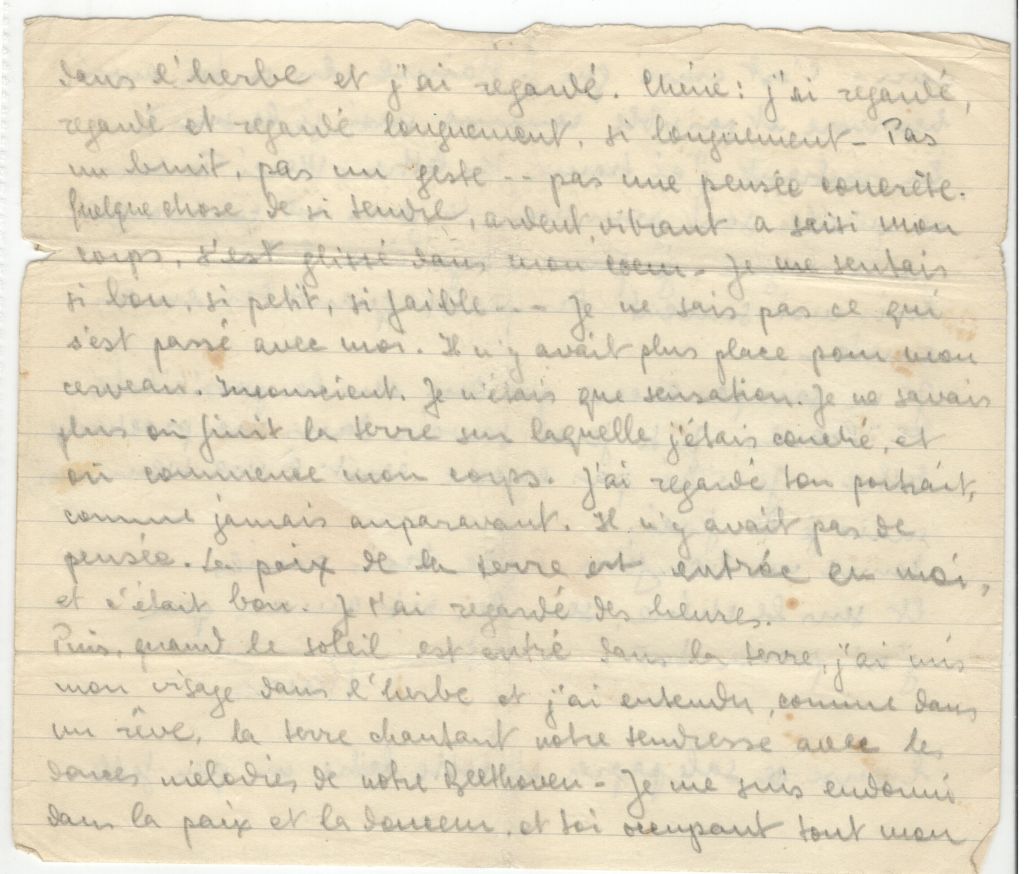 dans l'herbe et j'ai regardé. Chérie: j'ai regardé,
regardé et regardé longuement, si longuement - Pas
un bruit, pas un geste -- pas une pensée concrète.
Quelque chose de si tendre, ardent, vibrant a saisi mon
corps, s'est glissé dans mon coeur - Je me sentais
si bon, si petit, si faible --- Je ne sais pas ce qui
s'est passé avec moi. Il n'y avait plus place pour mon
cerveau. Inconscient. Je n'étais que sensation. Je ne savais
plus où finit la terre sur laquelle j'étais couché, et
où commence mon corps. J'ai regardé ton portrait,
comme jamais auparavant. Il n'y avait pas de
pensée. La paix de la terre est entrée en moi,
et c'était bon. Je t'ai regardé des heures.
Puis, quand le soleil est entré dans la terre, j'ai mis
mon visage dans l'herbe et j'ai entendu, comme dans
un rêve, la terre chantant notre tendresse avec les
douces mélodies de notre Beethoven - Je me suis endormi
dans la paix et la douceur, et toi occupant tout mon